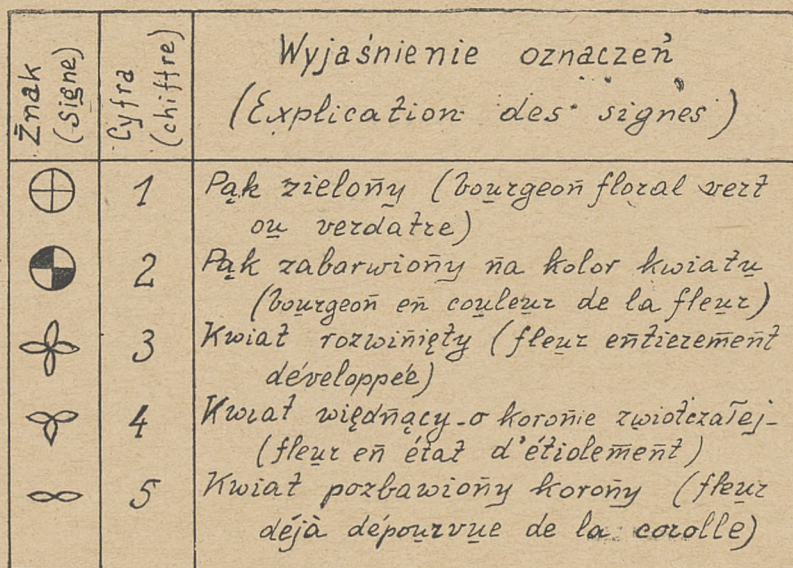 Znak
(Signe)
Cyfra
(chiffre)
Wyjaśnienie oznaczeń
(Explication des signes)
1 Pąk zielony (bourgeon floral vert
ou verdatre)
2 Pąk zabarwiony na kolor kwiatu
(bourgeon en couleur de la fleur)
3 Kwiat rozwinięty (fleur entierement
développée)
4 Kwiat więdnący o koronie zwiotczałej-
(fleur en état d'étiolement)
5 Kwiat pozbawiony korony (fleur
déjà dépourvue de la corolle)